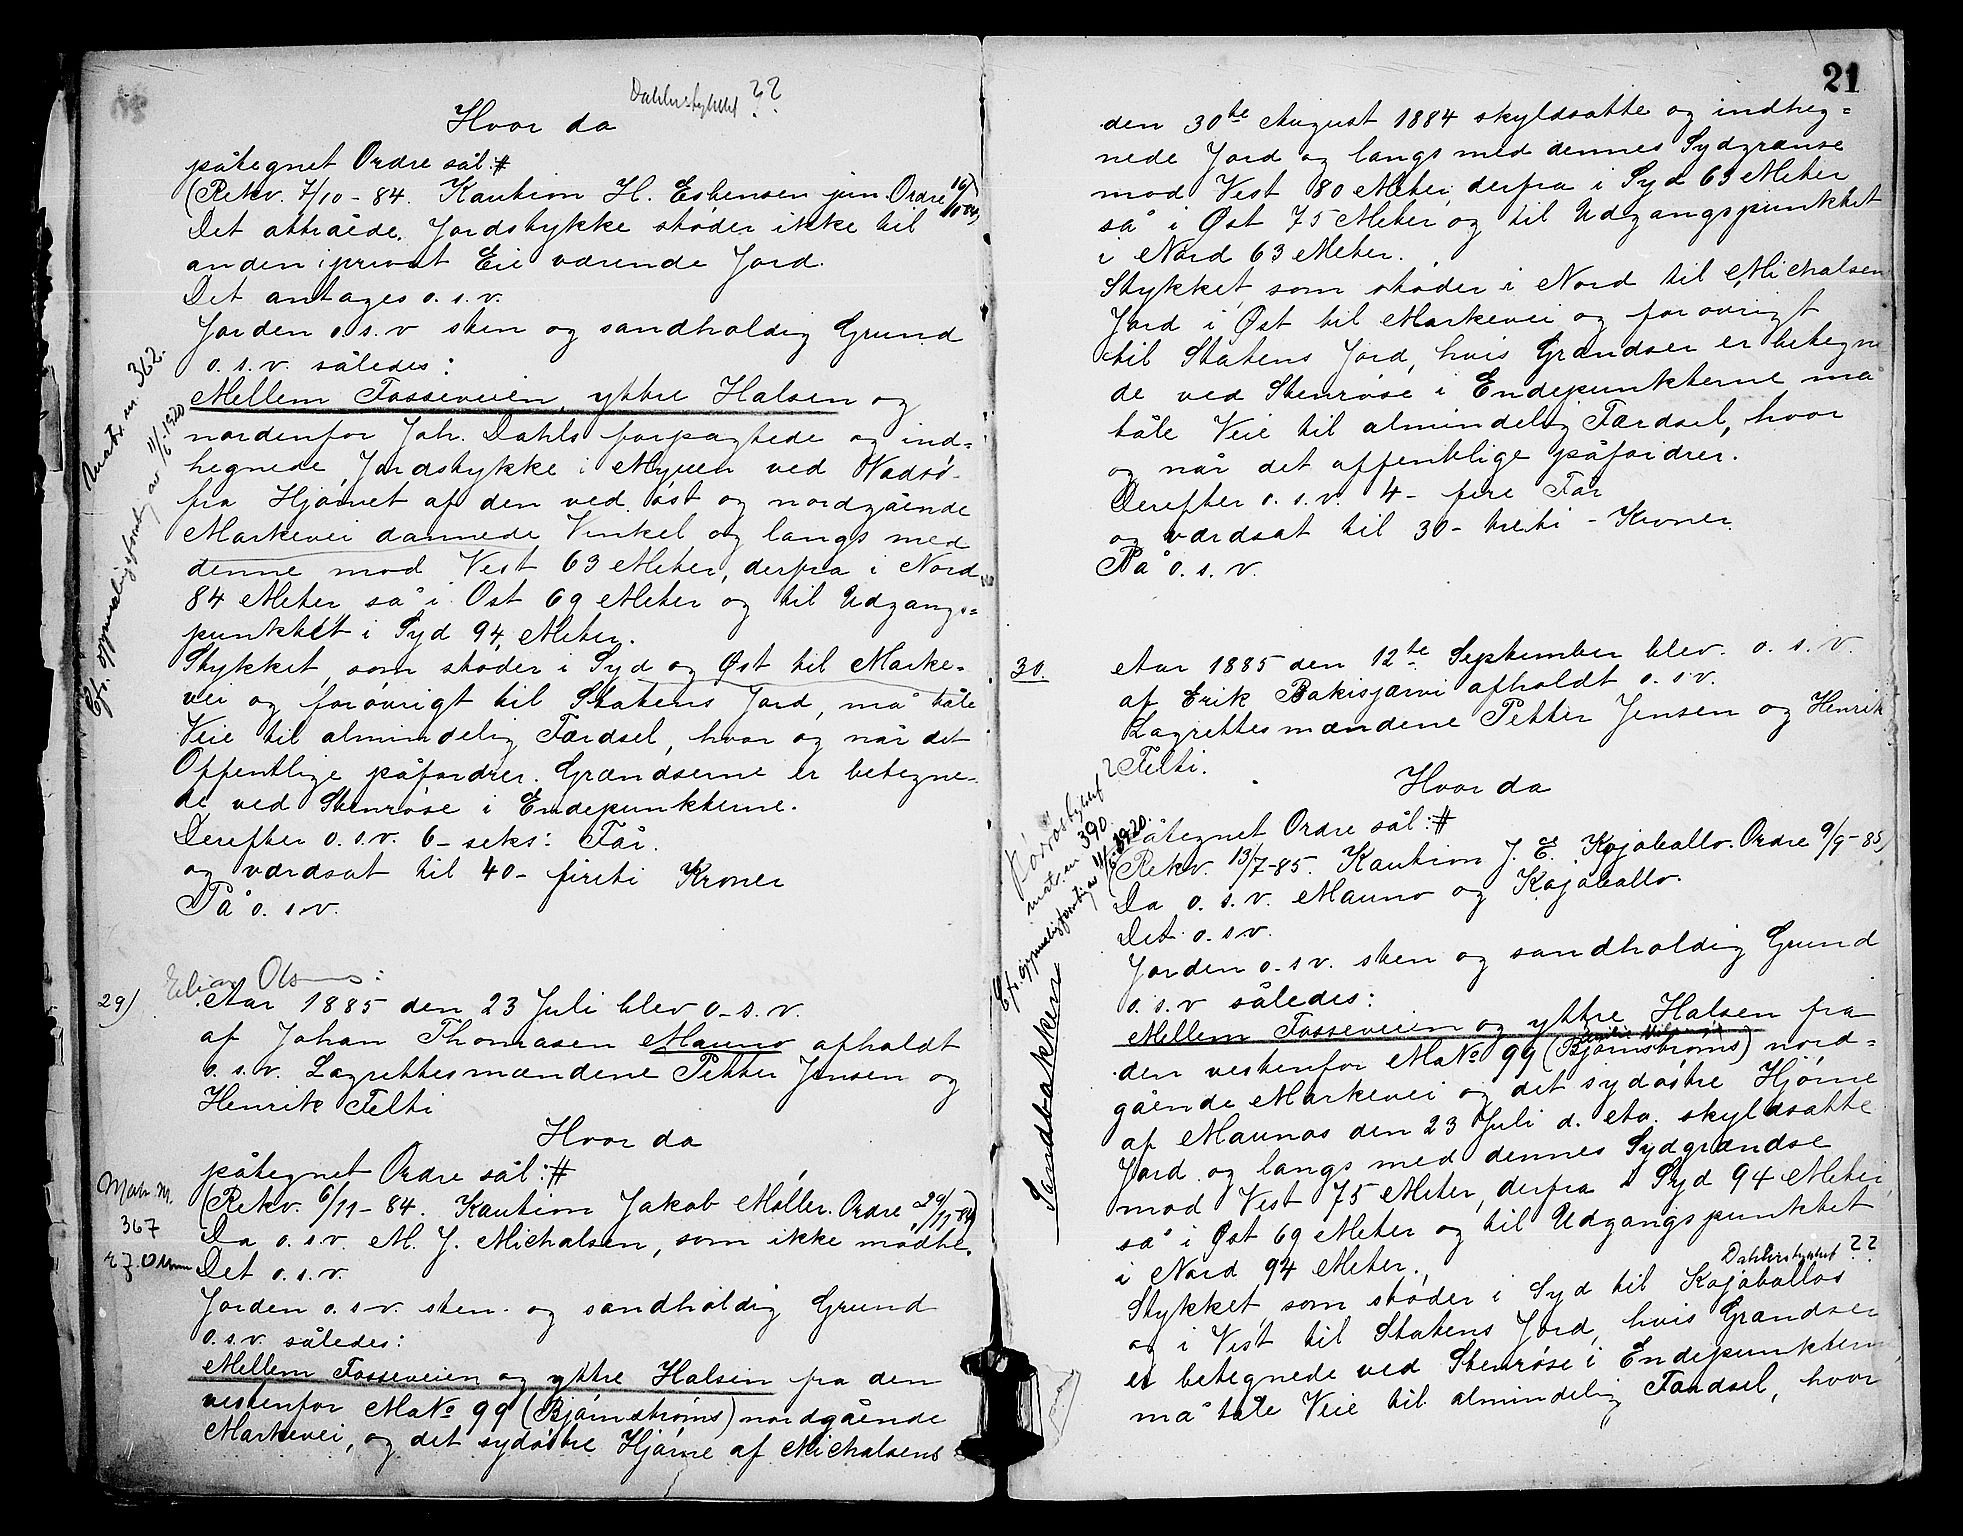 Dahlerstykket ??
Hvor da
påtegnet Ordre sål:#
(Rekv. 7/10-84. Kaution H. Esbensen jun. Ordre 16/10 84)
Det attråede Jordstykke støder ikke til
anden i privat Eie værende Jord.
Det antages o.s.v.
Jorden o.s.v sten og sandholdig Grund
o.s.v. således:
Mellem Fosseveien, yttre Halsen og
nordenfor Joh. Dahls forpagtede og ind=
hegnede Jordstykke i Myren ved Vadsø
fra Hjørnet af den ved øst og nordgående
Markevei dannede Vinkel og langs med
denne mod Vest 63 Meter, derfra i Nord
84 Meter så i Øst 69 Meter og til Udgangs=
punktet i Syd 94 Meter.
Stykket, som støder i Syd og Øst til Marke-
vei og forøvrigt til Statens Jord, må tåle
Veie til almindelig Færdsel, hvor og når det
Offentlige påfordrer. Grændserne er betegne-
de ved Stenrøse i Endepunkterne.
Derefter o.s.v. 6 - seks: Får.
og værdsat til 40 - firti Kroner
På o.s.v.
Matr. nr. 362.
Cfr. oppmålingsforretning av 11/6-1920
Olsen:
29) Aar 1885 den 23 Juli blev o.s.v.
af Johan Thomasen Mauno afholdt
o.s.v. Lagrettesmændene Petter Jensen og
Henrik Felti
Hvor da
påtegnet Ordre sål:#
(Rekv. 6/11-84. Kaution Jakob Møller. Ordre 29/11 84)
Da o.s.v. M. J. Michalsen, som ikke mødte.
Det o.s.v.
Jorden o.s.v. sten og sandholdig Grund
o.s.v. således:
Mellem Fosseveien og yttre Halsen fra den
vestenfor Ma№ 99 (Bjørnstrøms) nordgående
Markevei, og det sydøstre Hjørne af Michalsens
Matr. nr.
367
21
den 30te August 1884 skyldsatte og indheg=
nede Jord og langs med dennes Sydgrænse
mod Vest 80 Meter, derfra i Syd 63 Meter
så i Øst 75 Meter og til Udgangspunktet
i Nord 63 Meter.
Stykket, som støder i Nord til Michalsens
Jord i Øst til Markevei og forøvrigt
til Statens Jord, hvis Grændser er betegne
de ved Stenrøse i Endepunkterne må
tåle Veie til almindelig Færdsel, hvor
og når det offentlige påfordrer.
Derefter o.s.v. 4 - fire Får
og værdsat til 30 - treti - Kroner.
På o.s.v.
30. Aar 1885 den 12te September blev o.s.v.
af Erik Bakisjarvi afholdt o.s.v.
Lagrettesmændene Petter Jensen og Henrik
Felti.
Hvor da
påtegnet Ordre sål:#
(Rekv. 13/7-85. Kaution J. E. Kojaballo. Ordre 9/9-85)
Da o.s.v. Mauno og Kojaballo.
Det o.s.v.
Jorden o.s.v. sten og sandholdig Grund
o.s.v således:
Mellem Fosseveien og yttre Halsen fra
den vestenfor Ma№ 99 (Bjørnstrøms) nord=
gående Markevei og det sydøstre Hjørne
af Maunos den 23 Juli d. Aa. skyldsatte
Jord og langs med dennes Sydgrændse
mod Vest 75 Meter, derfra i Syd 94 Meter,
så i Øst 69 Meter og til Udgangspunktet
i Nord 94 Meter.
Dahlerstykket ??
Stykket, som støder i Syd til Kojaballos
og i Vest til Statens Jord, hvis Grændser
er betegnede ved Stenrøse i Endepunkterne,
må tåle Veie til almindelig Færdsel, hvor
matr. nr 390.
Cfr. oppmålingsforretning av 11/6-1920.
Sandbakkene